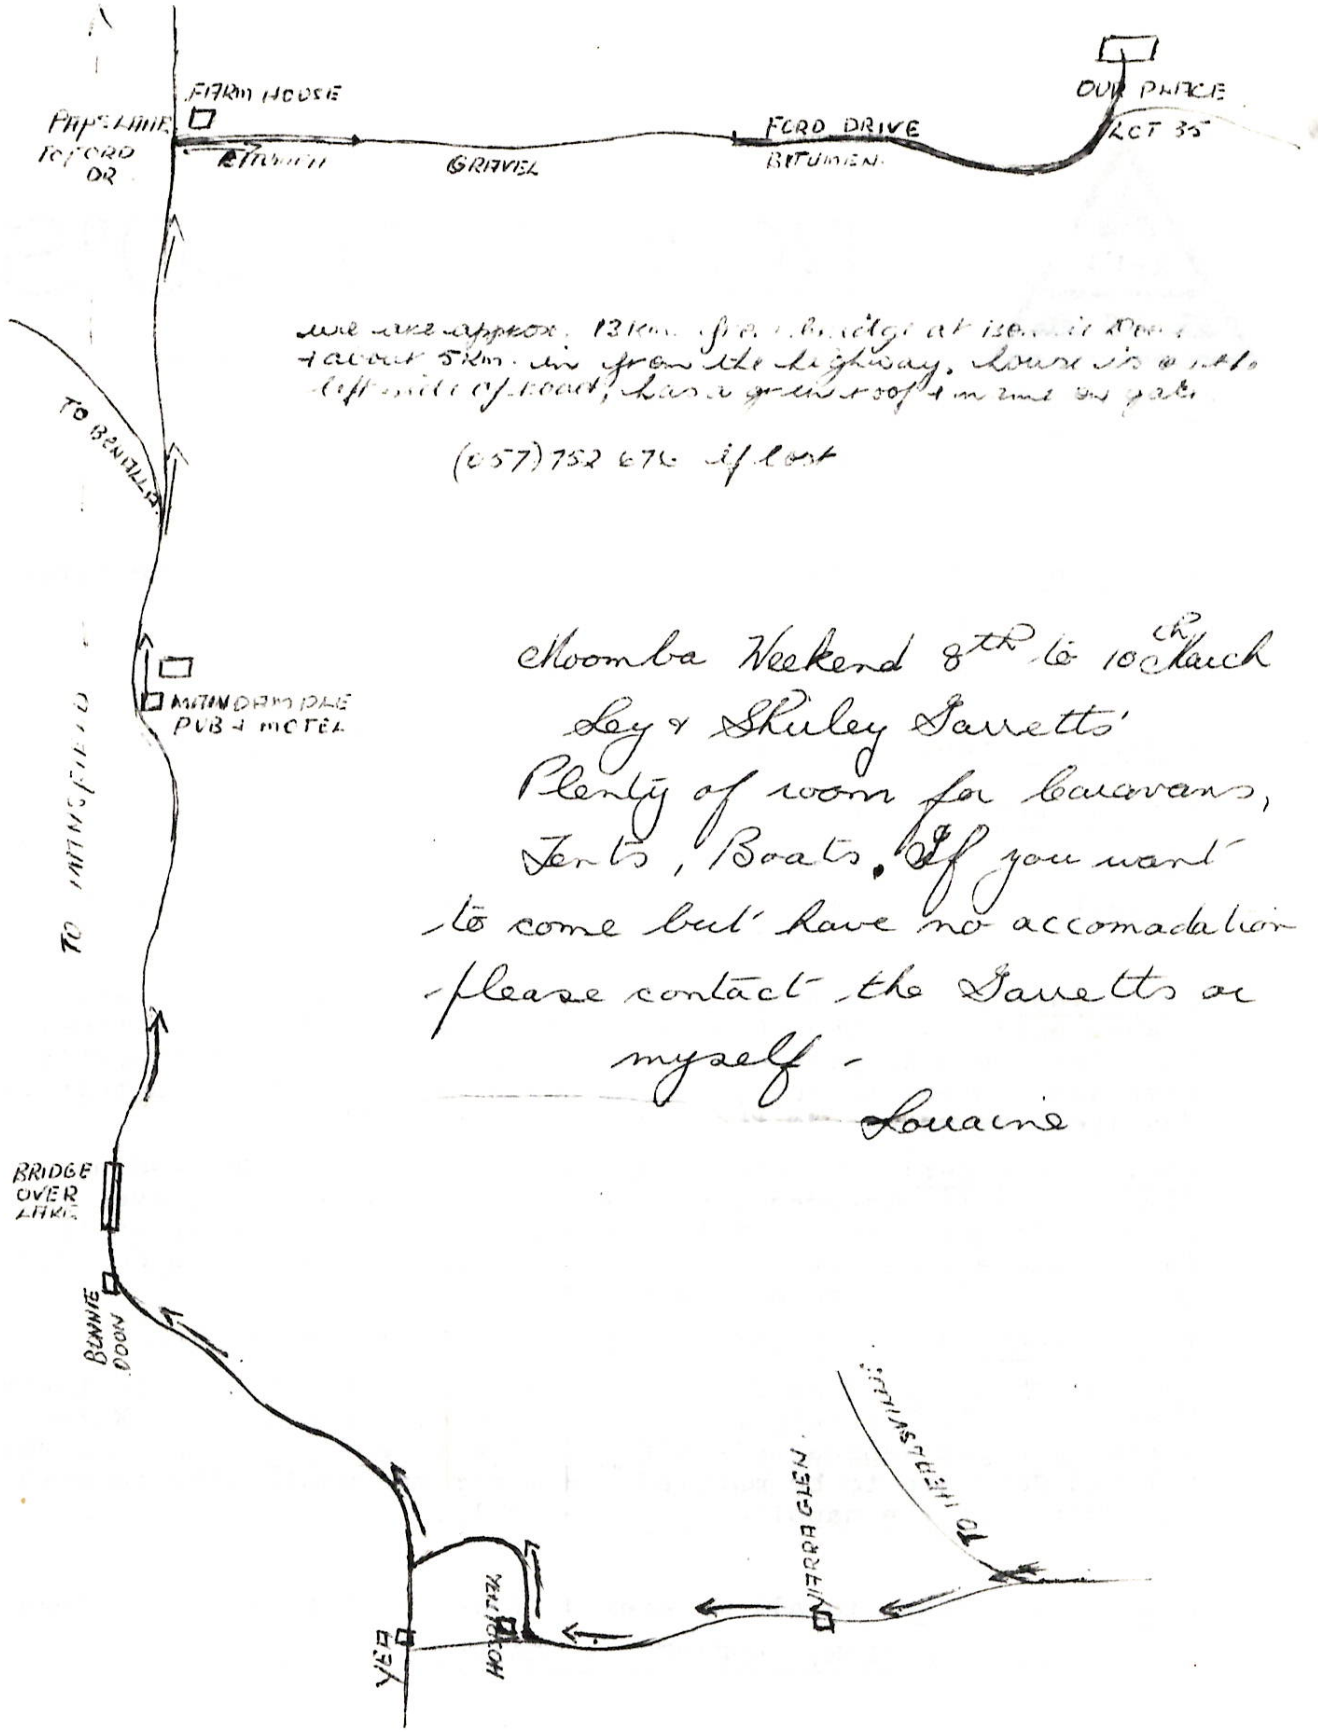 FARM HOUSE
PAPS LANE
TO FORD
DR.
BITUMEN
GRAVEL
FORD DRIVE
BITUMEN
OUR PLACE
LOT 35
we are approx. 13 km. from bridge at Bonnie Doon
+ about 5 km. in from the highway. house is on the
left side of road, has a green roof + name on gate
(057) 752 676 if lost
TO BENALLA
Moomba Weekend 8th to 10th March
Ley & Shirley Garretts'
Plenty of room for Caravans,
Tents, Boats. If you want
to come but have no accomadation
please contact the Garretts or
myself -
Lorraine
MAINDAMPLE
PUB + MOTEL
TO MANSFIELD
BRIDGE
OVER
LAKE
BONNIE
DOON
TO HEALSVILLE
YARRA GLEN
HOSPITAL
YEA